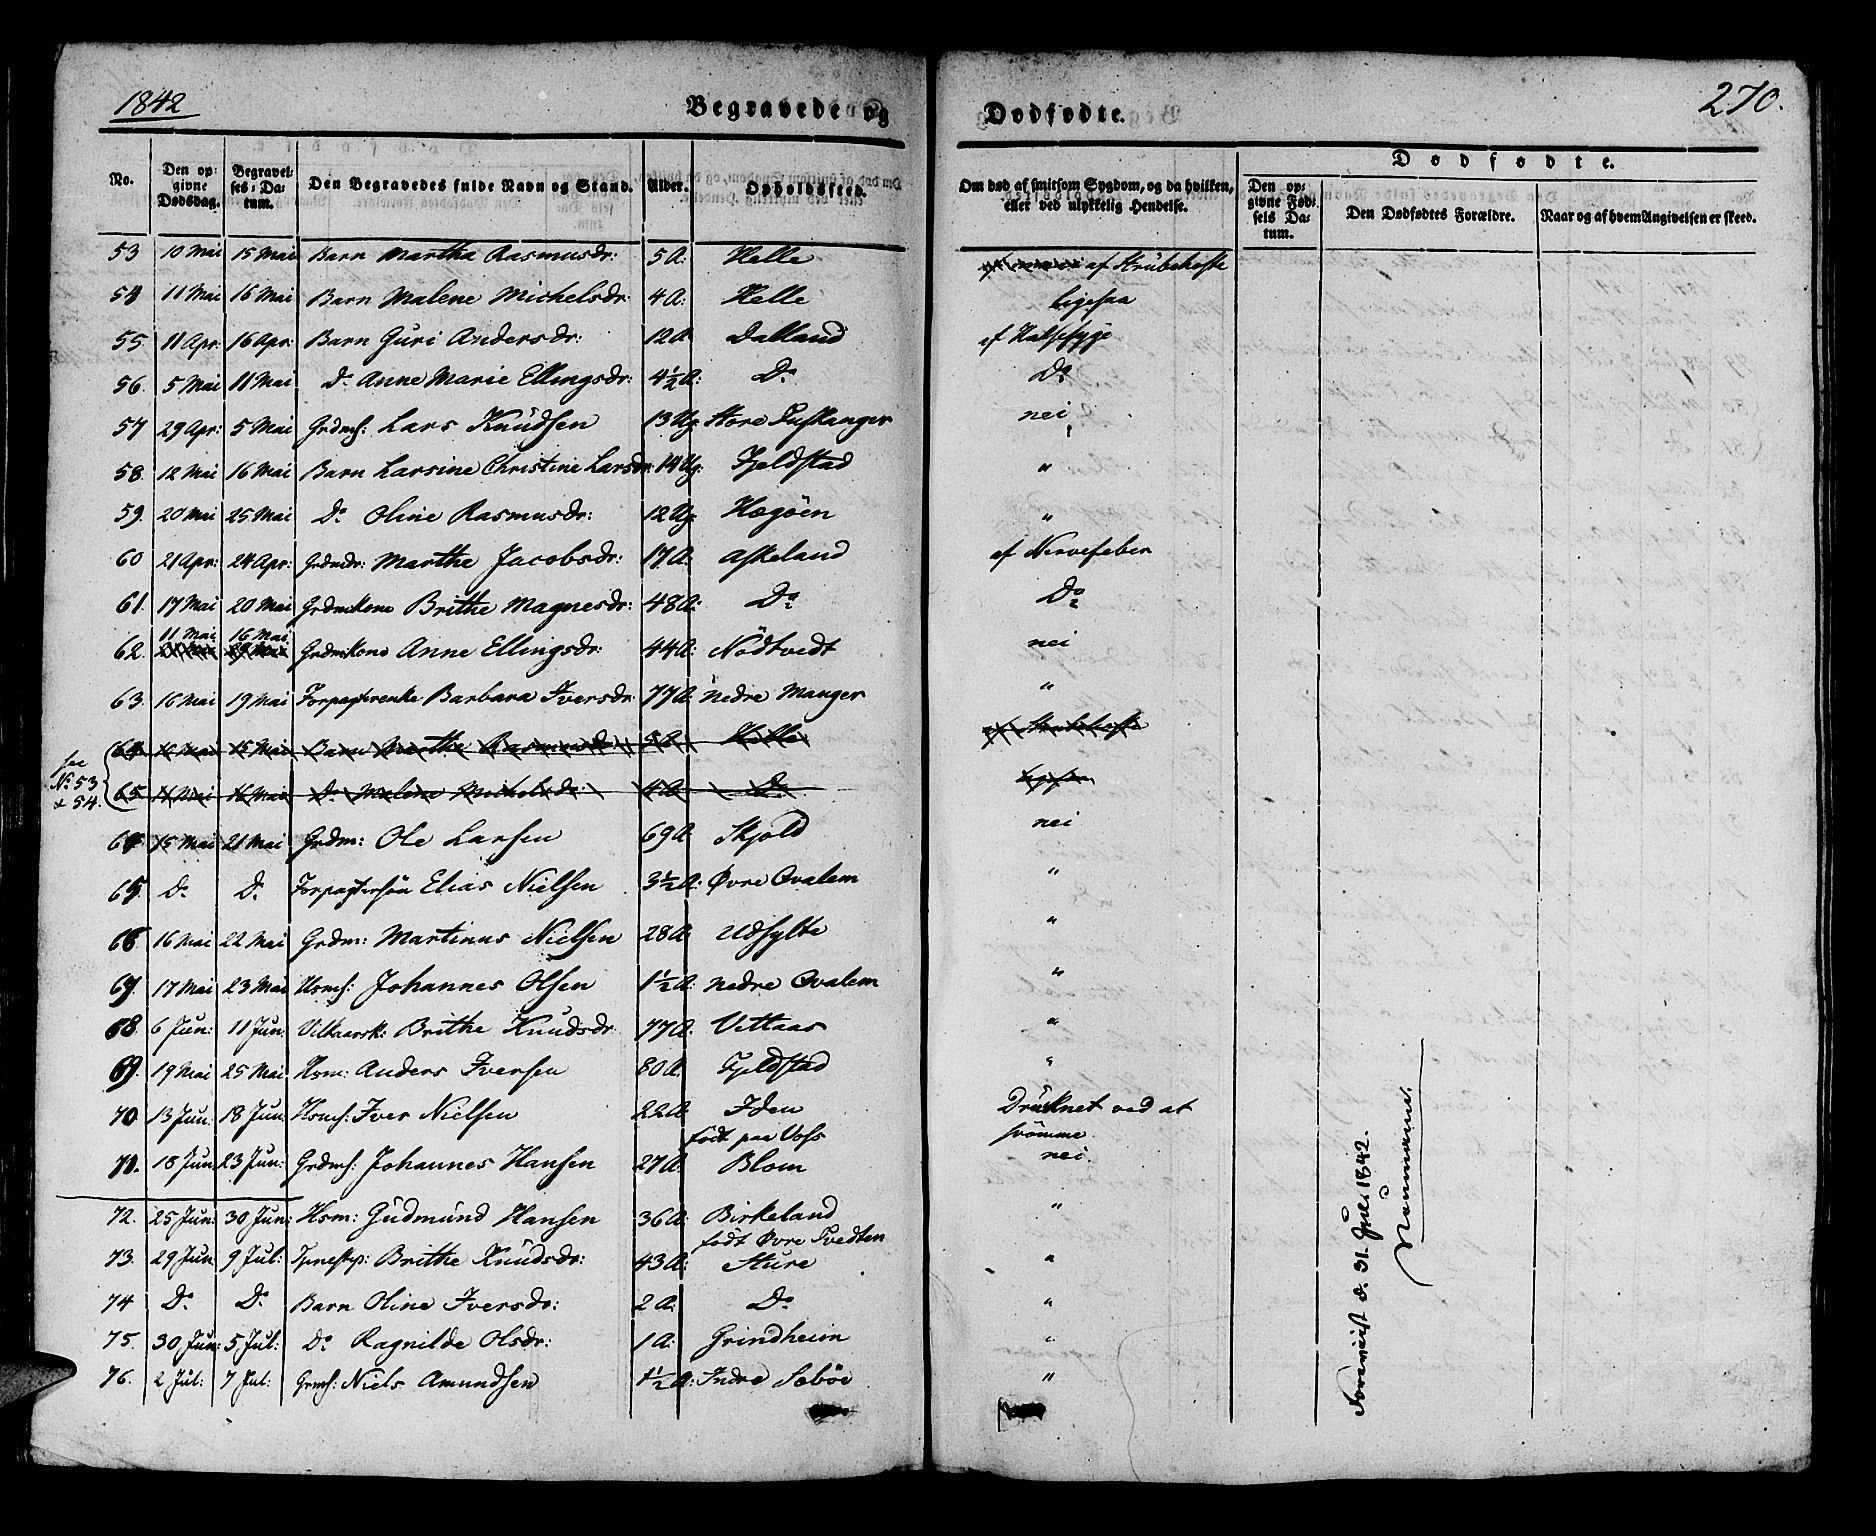 1842
Begravede og Dødfødte.
270.
No. | Den opgivne Dødsdag. | Begravelses-Datum. | Den Begravedes fulde Navn og Stand. | Alder. | Opholdssted. | Om død af smitsom Sygdom, og da hvilken, eller ved ulykkelig Hendelse. | Dødfødte. | Den opgivne Fødsels Datum. | Den Dødfødtes Forældre. | Naar og af hvem Angivelsen er skeed.
53 | 10 Mai | 15 Mai | Barn Martha Rasmusdr: | 5 A: | Helle | af Strubehoste
54 | 11 Mai | 16 Mai | Barn Malene Michelsdr: | 4 A: | Helle | ligesaa
55. | 11 Apr: | 16 Apr: | Barn Guri Andersdr: | 12 A | Dalland | af Halssyge
56. | 5 Mai | 11 Mai | Do Anne Marie Ellingsdr: | 4½ A: | Do | Do
57 | 29 Apr: | 5 Mai | Grdms: Lars Knudsen | 13 Ug: | Store Tuskanger | nei
58. | 12 Mai | 16 Mai | Barn Larsine Christine Larsdr: | 14 Ug: | Fjeldstad | "
59. | 20 Mai | 25 Mai | Do Oline Rasmusdr: | 12 Ug | Hægöen | "
60 | 21 Apr: | 24 Apr: | Grdmdr: Marthe Jacobsdr: | 17 A: | Askeland | af Nervefeber
61. | 17 Mai | 20 Mai | Grdmkone Brithe Magnesdr: | 48 A: | Do | Do
62. | 11 Mai | 16 Mai | Grdmkone Anne Ellingsdr: | 44 A: | Nödtvedt | nei
63. | 16 Mai | 19 Mai | Forpagterenke Barbara Iversdr: | 77 A: | nedre Manger | "
see No 53 & 54.
64. | 10 Mai | 15 Mai | Barn Marthe Rasmusdr | 5 A | Helle | af Strubehoste
65. | 11 Mai | 16 Mai | Do Malene Michelsdr: | 4 A | Do | ligesaa
64 | 15 Mai | 21 Mai | Grdm: Ole Larsen | 69 A | Skjold | nei
65 | Do | Do | Forpagtersön Elias Nielsen | 3½ A: | Øvre Qvalem | "
66 | 16 Mai | 22 Mai | Grdm: Martinus Nielsen | 28 A: | Udsylte | "
67. | 17 Mai | 23 Mai | Hsms: Johannes Olsen | 1½ A: | nedre Qvalem | "
68. | 6 Jun: | 11 Jun: | Vilkaarsk: Brithe Knudsdr: | 77 A. | Vettaas | "
69. | 19 Mai | 25 Mai | Hsm: Anders Iversen | 80 A. | Fjeldstad | "
70 | 13 Jun: | 18 Jun: | Hsms: Iver Nielsen | 22 A: | Iden | Druknet ved at svömme.
71. | 18 Jun | 23 Jun: | Grdms: Johannes Hansen | 27 A. | födt paa Voss Blom | nei.
72. | 25 Jun: | 30 Jun: | Hsm: Gudmund Hansen | 36 A: | Birkeland | "
73. | 29 Jun: | 9 Jul: | Tjenestep: Brithe Knudsdr: | 43 A: | födt Øvre Tvedten Sture | "
74 | Do | Do | Barn Oline Iversdr: | 2 A: | Do | "
75. | 30 Jun: | 5 Jul: | Do Ragnilde Olsdr: | 1 A: | Grindheim | "
76. | 2 Jul: | 7 Jul: | Grms: Niels Amundsen | 1½ A: | Indre Sæböe | "
Foreviist d. 31. Juli 1842.
Neumann.